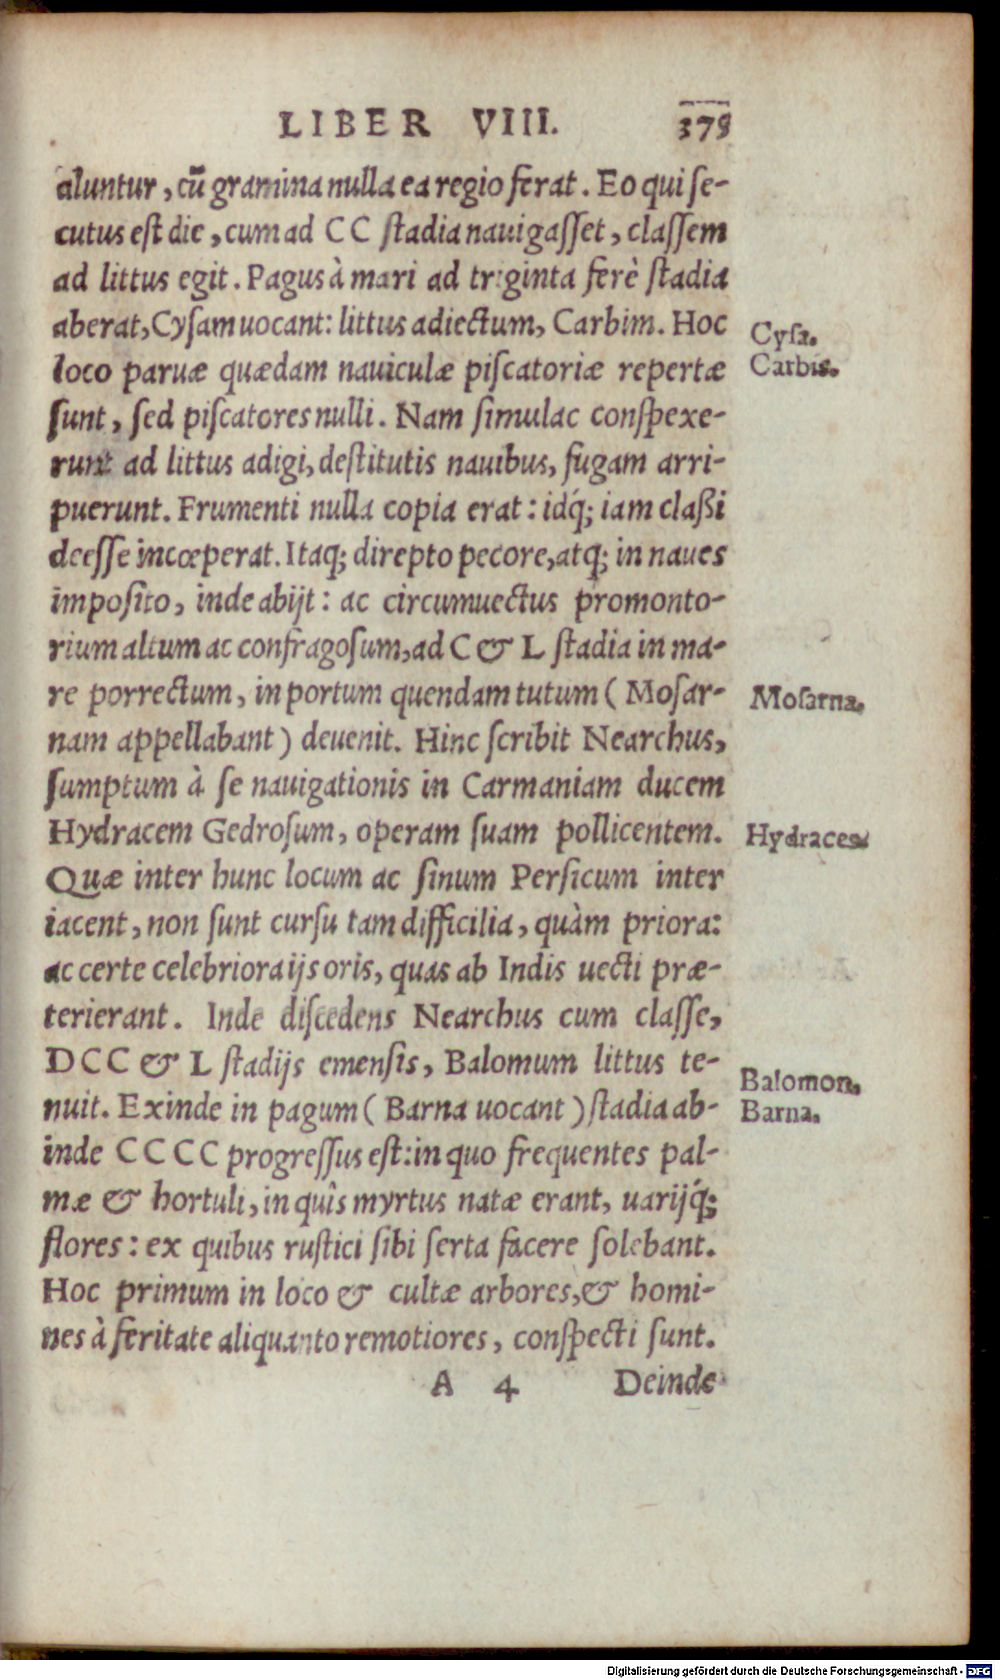 LIBER VIII. 375
aluntur, cū gramina nulla ea regio ferat. Eo qui se-
cutus est die, cum ad CC stadia nauigasset, classem
ad littus egit. Pagus à mari ad triginta ferè stadia
aberat, Cysam uocant: littus adiectum, Carbim. Hoc
Cysa.
loco paruæ quædam nauiculæ piscatoriæ repertæ
Carbis.
sunt, sed piscatores nulli. Nam simulac conspexe-
runt ad littus adigi, destitutis nauibus, fugam arri-
puerunt. Frumenti nulla copia erat: idq́; iam claßi
deesse incœperat. Itaq; direpto pecore, atq; in naues
imposito, inde abijt: ac circumuectus promonto-
rium altum ac confragosum, ad C & L stadia in ma-
re porrectum, in portum quendam tutum (Mosar-
Mosarna.
nam appellabant) deuenit. Hinc scribit Nearchus,
sumptum à se nauigationis in Carmaniam ducem
Hydracem Gedrosum, operam suam pollicentem.
Hydraces
Quæ inter hunc locum ac sinum Persicum inter
iacent, non sunt cursu tam difficilia, quàm priora:
ac certe celebriora ijs oris, quas ab Indis uecti præ-
terierant. Inde discedens Nearchus cum classe,
DCC & L stadijs emensis, Balomum littus te-
Balomon.
nuit. Exinde in pagum (Barna uocant) stadia ab-
Barna.
inde CCCC progressus est: in quo frequentes pal-
mæ & hortuli, in quîs myrtus natæ erant, uarijq́;
flores: ex quibus rustici sibi serta facere solebant.
Hoc primum in loco & cultæ arbores, & homi-
nes à feritate aliquanto remotiores, conspecti sunt.
A 4 Deinde
Digitalisierung gefördert durch die Deutsche Forschungsgemeinschaft - DFG